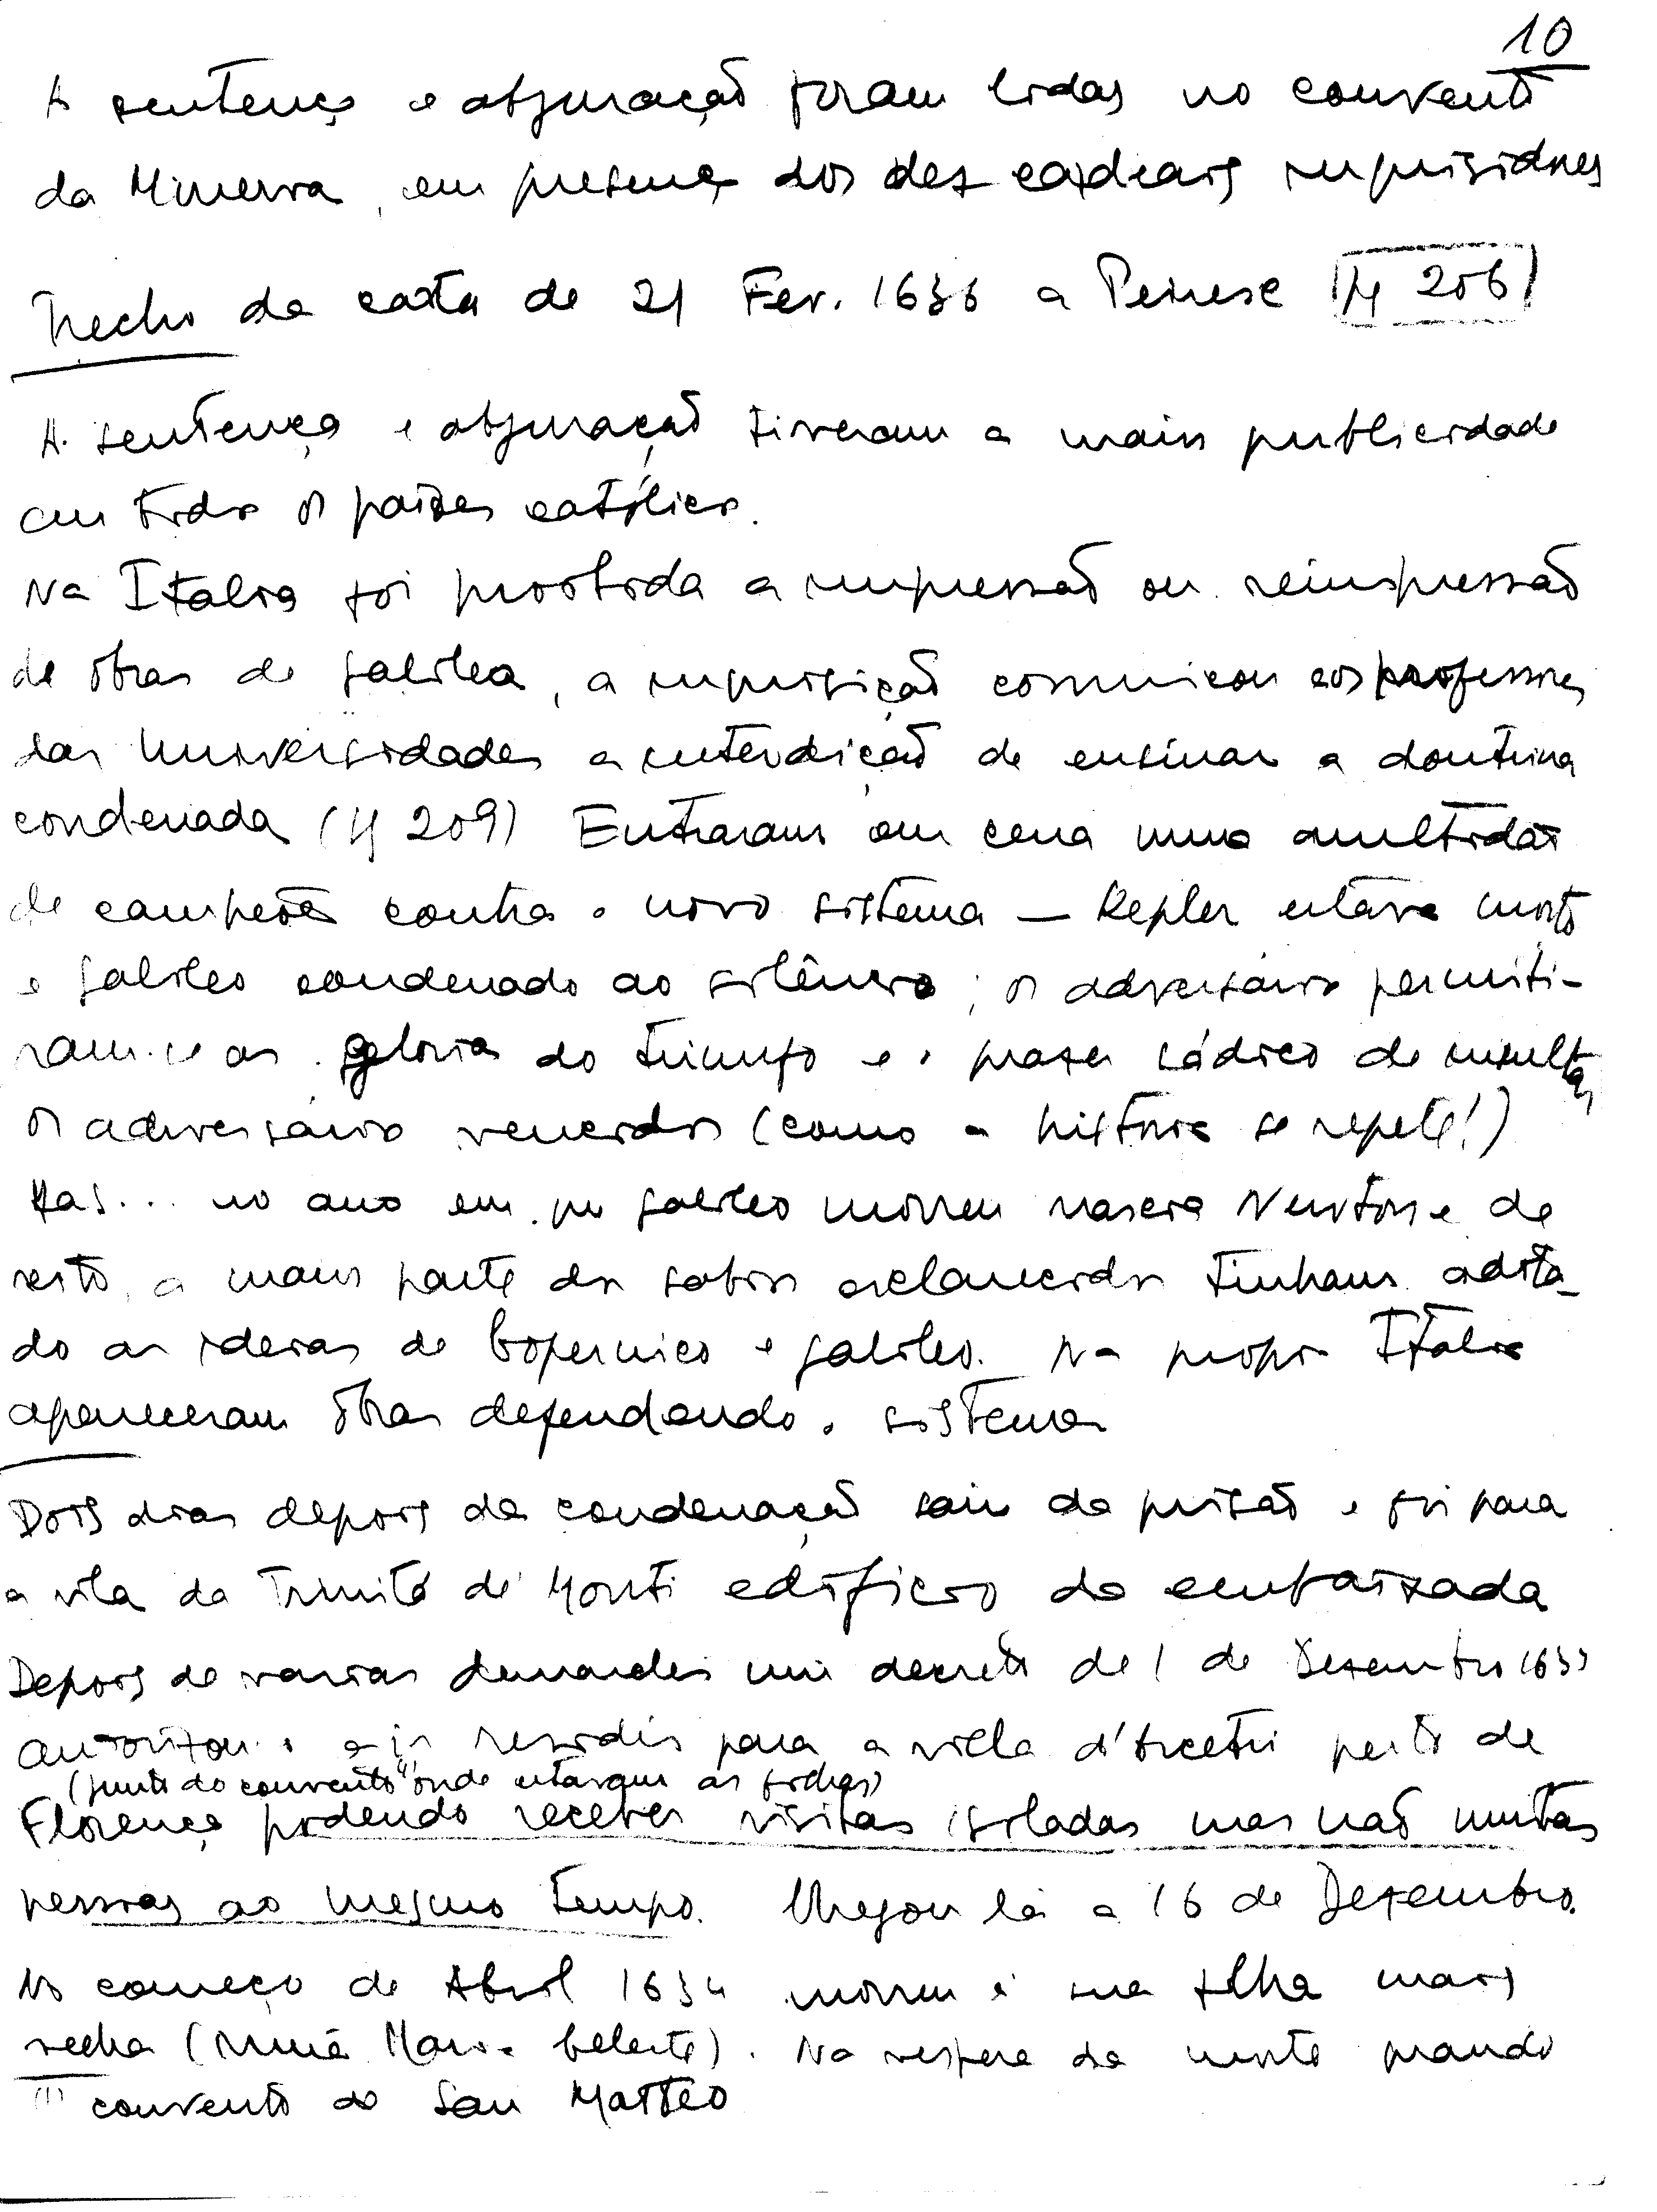 10
A sentença e abjuração foram lidas no convento
da Minerva, em presença dos dez cardeais inquisidores
Trecho da carta de 21 Fev. 1636 a Peiresc (H 206)
A sentença e abjuração tiveram a maior publicidade
em todos os países católicos.
Na Italia foi proibida a impressão ou reimpressão
de obras de Galilea, a inquisição comunicou aos professores
das Universidades a interdição de ensinar a doutrina
condenada (H 209) Entraram em cena uma multidão
de campeões contra o novo sistema — Kepler estava morto
e Galileo condenado ao silêncio; os adversários permiti-
ram-se as gloria do triunfo e o prazer sádico de insultar
os adversários vencidos (como a história se repete!)
Mas... no ano em que Galileo morreu nascia Newton e de
resto, a maior parte dos sabios esclarecidos tinham adota-
do as ideias de Copernico e Galileo. Na propria Italia
apareceram obras defendendo o sistema
Dois dias depois da condenação saiu da prisão e foi para
a vila da Trinitá de Monti edificio da embaixada
Depois de varias demandas um decreto de 1 de Dezembro 1633
autorizou-o a ir residir para a villa d'Arcetri perto de
(junto do convento (1) onde estavam as filhas)
Florença podendo receber visitas isoladas mas não muitas
pessoas ao mesmo tempo. Chegou lá a 16 de Dezembro.
No começo de Abril 1634 morreu a sua filha mais
velha (irmã Maria Celeste). Na vespera da morte quando
(1) convento de San Matteo